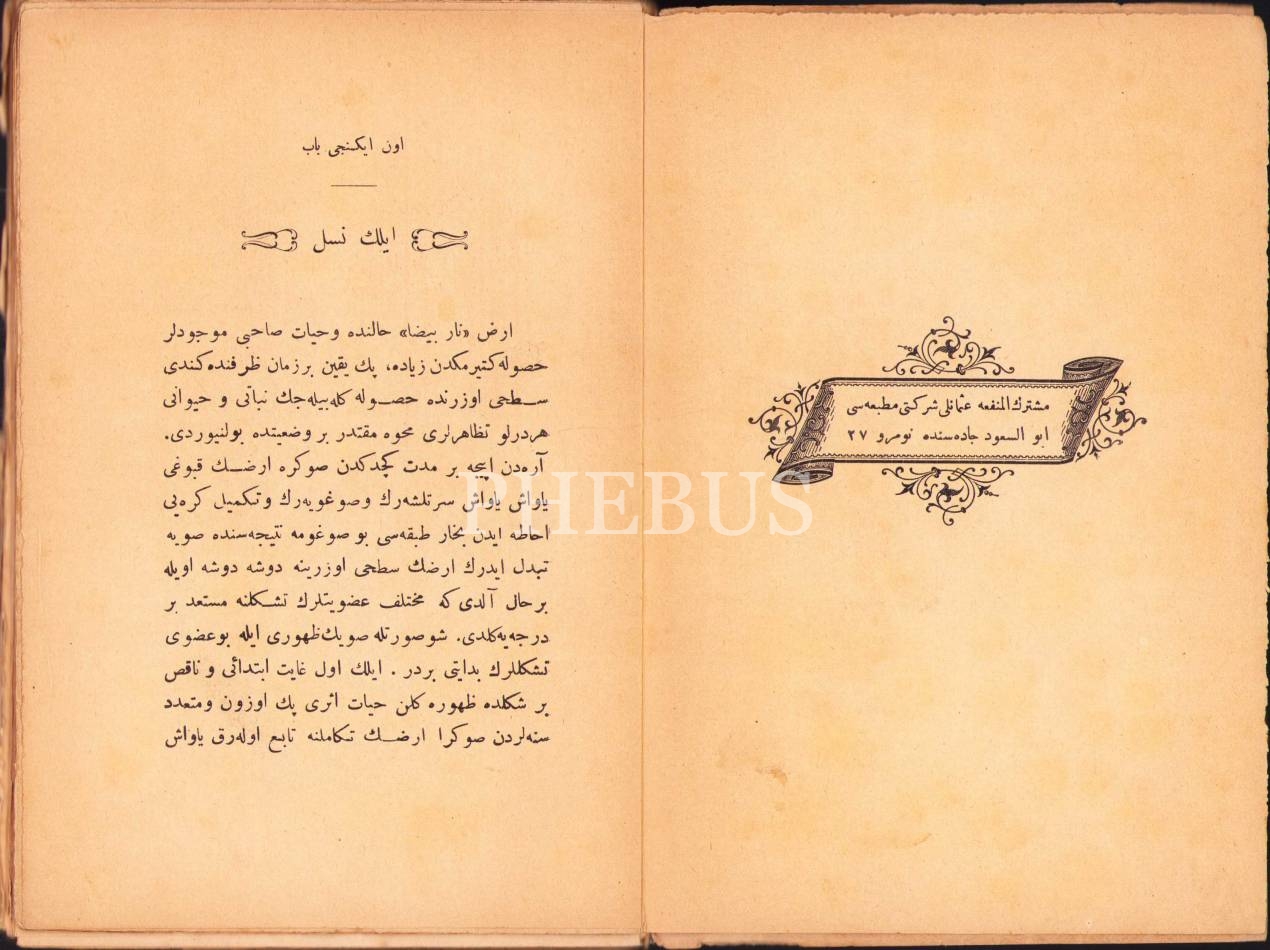 مشترك المنفعه عثمانلی شركتی مطبعه‌سی
ابو السعود جاده‌سنده نومرو ٢٧
اون ایكنجی باب
ایلك نسل
ارض «نار بیضا» حالنده وحیات صاحبی موجودلر
حصوله كتیرمكدن زیاده، پك یقین برزمان ظرفنده كندی
سطحی اوزرنده حصوله كله‌بیله‌جك نباتی و حیوانی
هردرلو تظاهرلری محوه مقتدر بر وضعیتده بولنیوردی.
آره‌دن اپیجه بر مدت كچدكدن صوكره ارضك قبوغی
یاواش یاواش سرتلشه‌رك وصوغویه‌رك وتكمیل كره‌یی
احاطه ایدن بخار طبقه‌سی بو صوغومه نتیجه‌سنده صویه
تبدل ایدرك ارضك سطحی اوزرینه دوشه دوشه اویله
برحال آلدی كه مختلف عضویتلرك تشكلنه مستعد بر
درجه‌یه‌كلدی. شوصورتله صویك ظهوری ایله بوعضوی
تشكللرك بدایتی بردر . ایلك اول غایت ابتدائی و ناقص
بر شكلده ظهوره كلن حیات اثری پك اوزون ومتعدد
سنه‌لردن صوكرا ارضك تكاملنه تابع اوله‌رق یاواش
PHEBUS